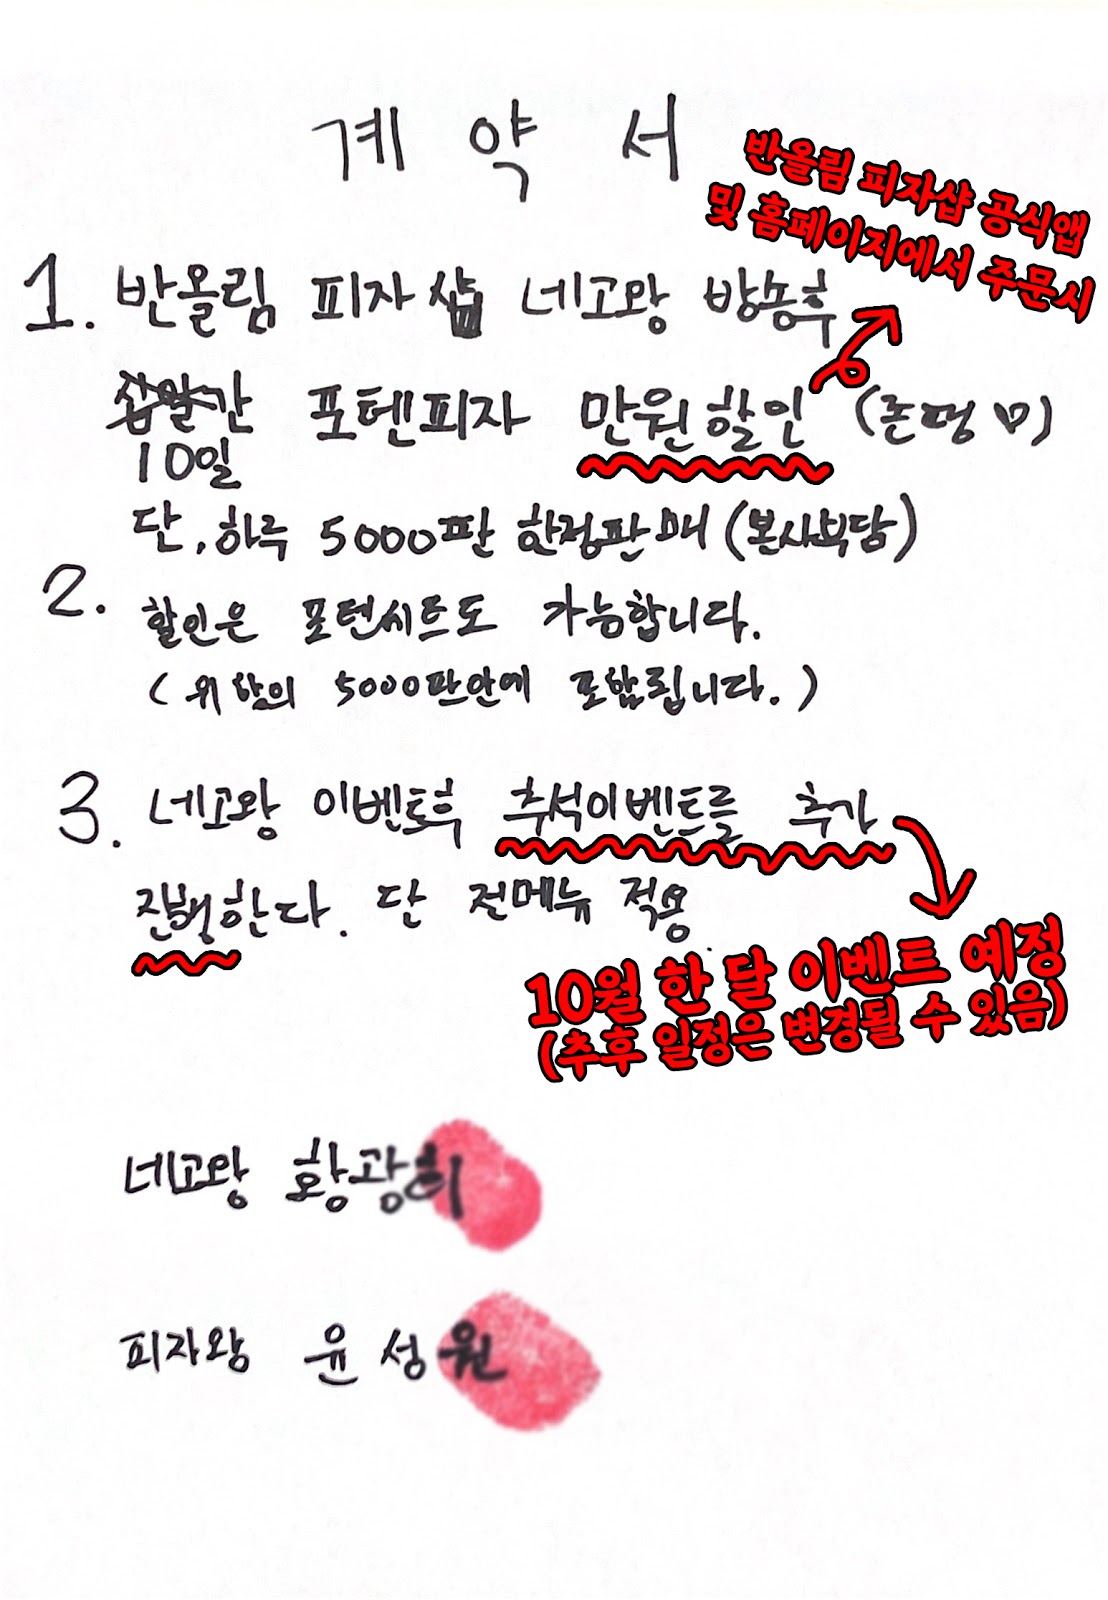 계약서
반올림 피자샵 공식앱
및 홈페이지에서 주문시
1. 반올림 피자샵 네고왕 방송후
십일간 포텐피자 만원할인 (존멍 미)
10일
단, 하루 5000판 한정판매 (본사부담)
2. 할인은 포텐시트도 가능합니다.
(위 항의 5000판안에 포함됩니다.)
3. 네고왕 이벤트후 추석이벤트를 추가
진행한다. 단 전메뉴 적용
10월 한 달 이벤트 예정
(추후 일정은 변경될 수 있음)
네고왕 황광희
피자왕 윤성원